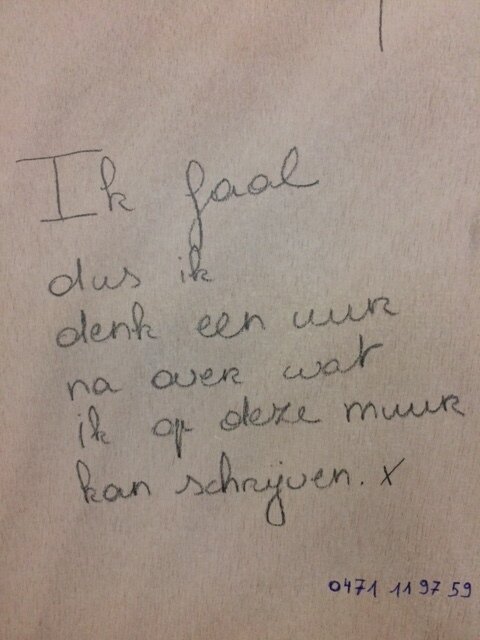 Ik faal
dus ik
denk een uur
na over wat
ik op deze muur
kan schrijven. x
0471 11 97 59